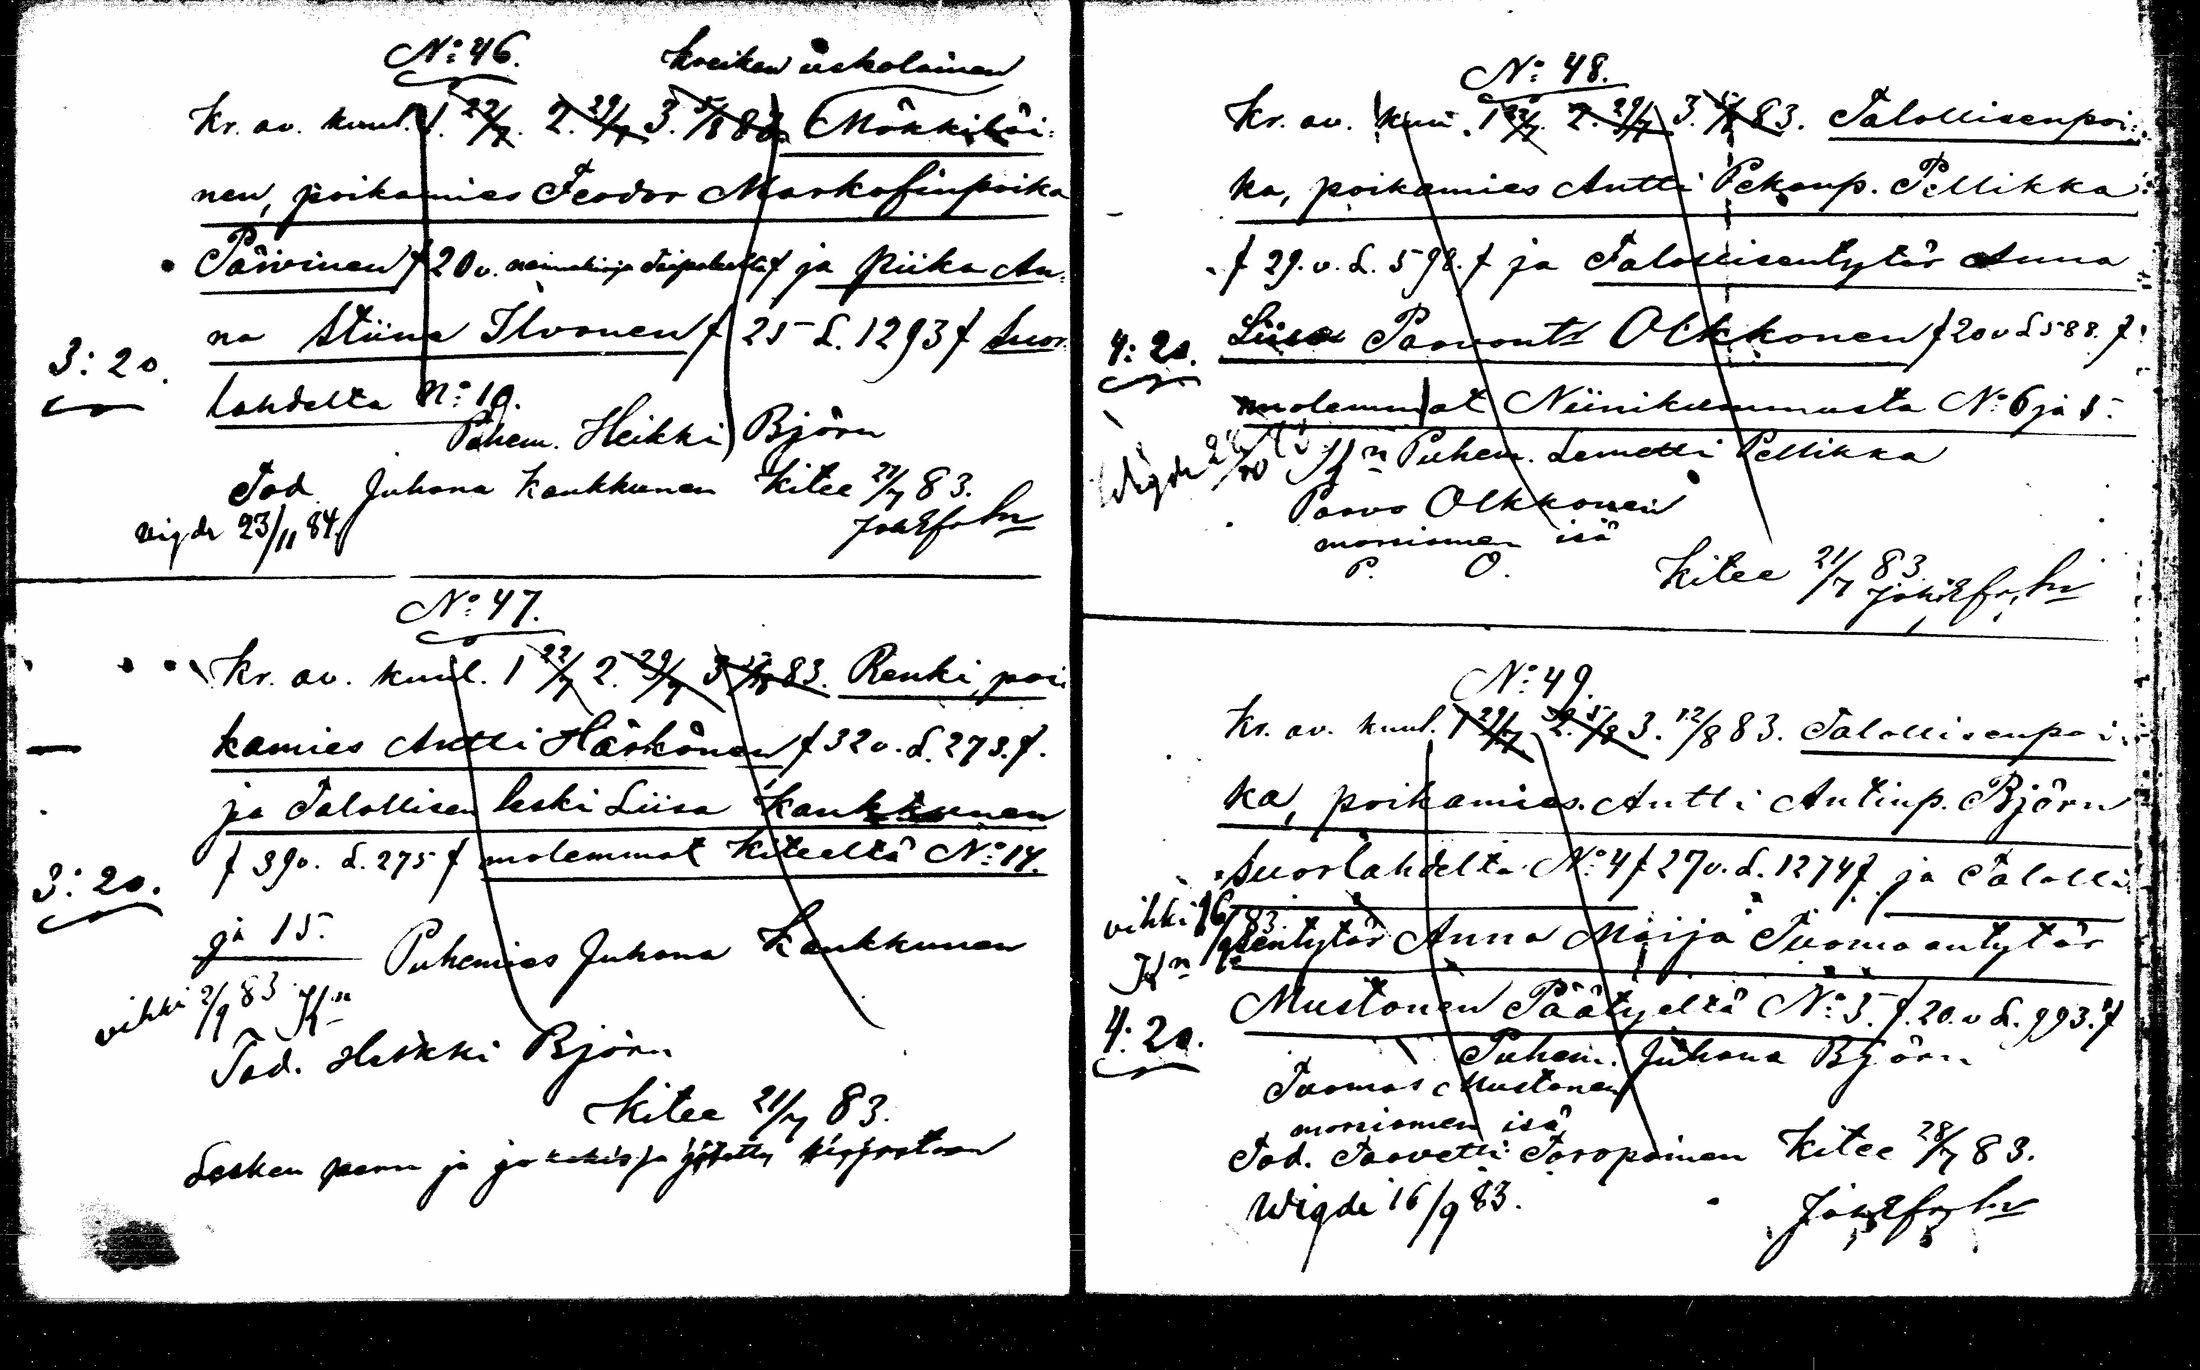 N:o 46.
kreikan uskolainen
Kr. av. kuul. 1. 22/7. 2. 29/7 3. 5/8 83. Mökkiläi-
nen, poikamies Feodor Markofinpoika
Päivinen f 20 v. f ja Piika An-
na Stiina Ilvonen f 25 L. 1293 f Suor-
3:20.
lahdelta N:o 10.
Puhem. Heikki Björn
Tod. Juhana Kaukkunen Kitee 21/7 83.
vigde 23/11 84
N:o 47.
Kr. av. kuul. 1 22/7 2. 29/7 3 5/8 83. Renki, poi-
kamies Antti Härkönen f 32 v. L. 273. f.
ja Talollisen leski Liisa Kaukkunen
f 39 v. L. 275 f molemmat Kiteeltä N:o 14.
3:20.
ja 15.
Puhemies Juhana Kaukkunen
vihki 2/9 83
Tod. Heikki Björn
Kitee 21/7 83.
Lesken peru ja
N:o 48.
Kr. av. kuu. 1 22/7. 2. 29/7 3. 5/8 83. Talollisenpoi-
ka, poikamies Antti Pekanp. Pellikka
f 29. v. L. 598. f ja Talollisentytär Anna
Liisa Paavont. Olkkonen f 20 v L 588. f
4:20.
molemmat Niinikummusta N:o 6 ja 5.
Puhem. Lemetti Pellikka
Paavo Olkkonen
morsiamen isä
P. O.
Kitee 21/7 83
N:o 49.
Kr. av. kuul. 1 29/7 2. 5/8 3. 12/8 83. Talollisenpoi-
ka, poikamies. Antti Antinp. Björn
Suorlahdelta N:o 4 f 27 v. L. 1274 f ja Talolli-
vihki 16/9 83
sentytär Anna Maija Tuomaantytär
Mustonen Päätyeltä N:o 5. f. 20. v L. 993. f
4:20.
Puhem. Juhana Björn
Tuomas Mustonen
morsiamen isä
Tod. Taavetti Toropainen Kitee 28/7 83.
Wigde 16/9 83.